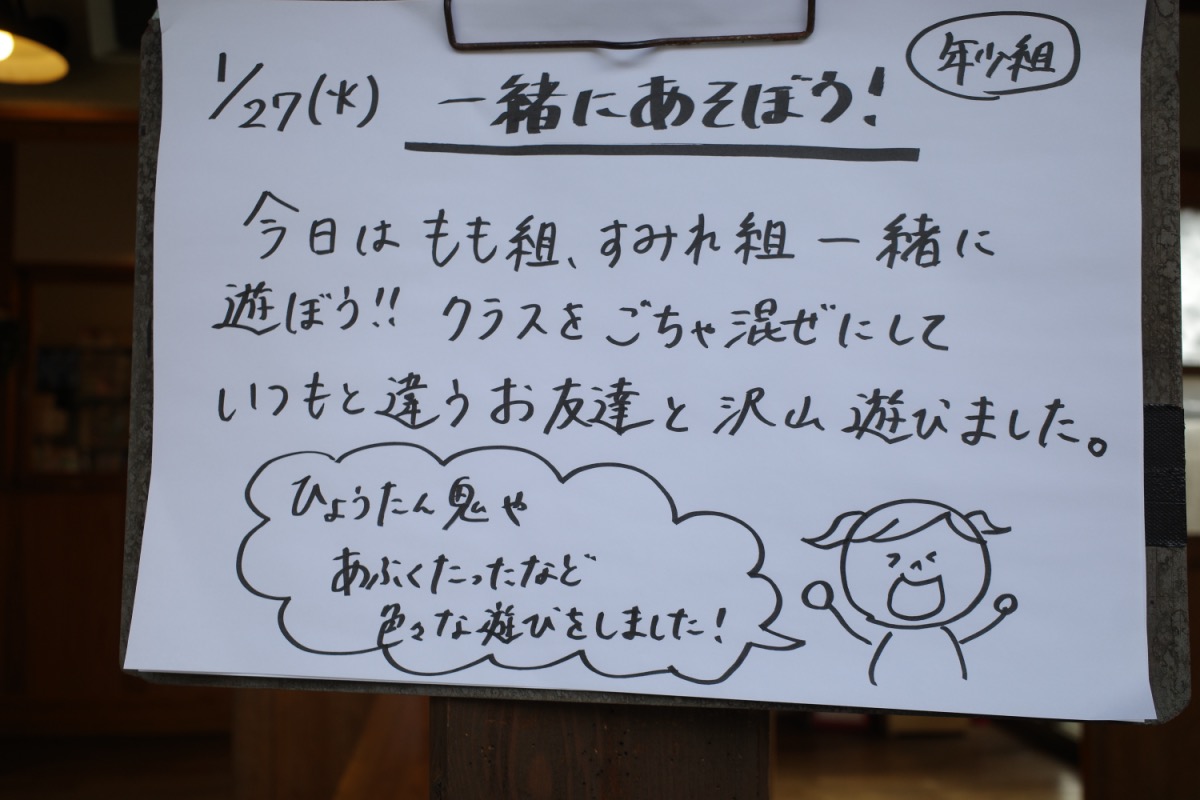 年少組
1/27(水) 一緒にあそぼう!
今日はもも組、すみれ組一緒に
遊ぼう!! クラスをごちゃ混ぜにして
いつもと違うお友達と沢山遊びました。
ひょうたん鬼や
あぶくたったなど
色々な遊びをしました!